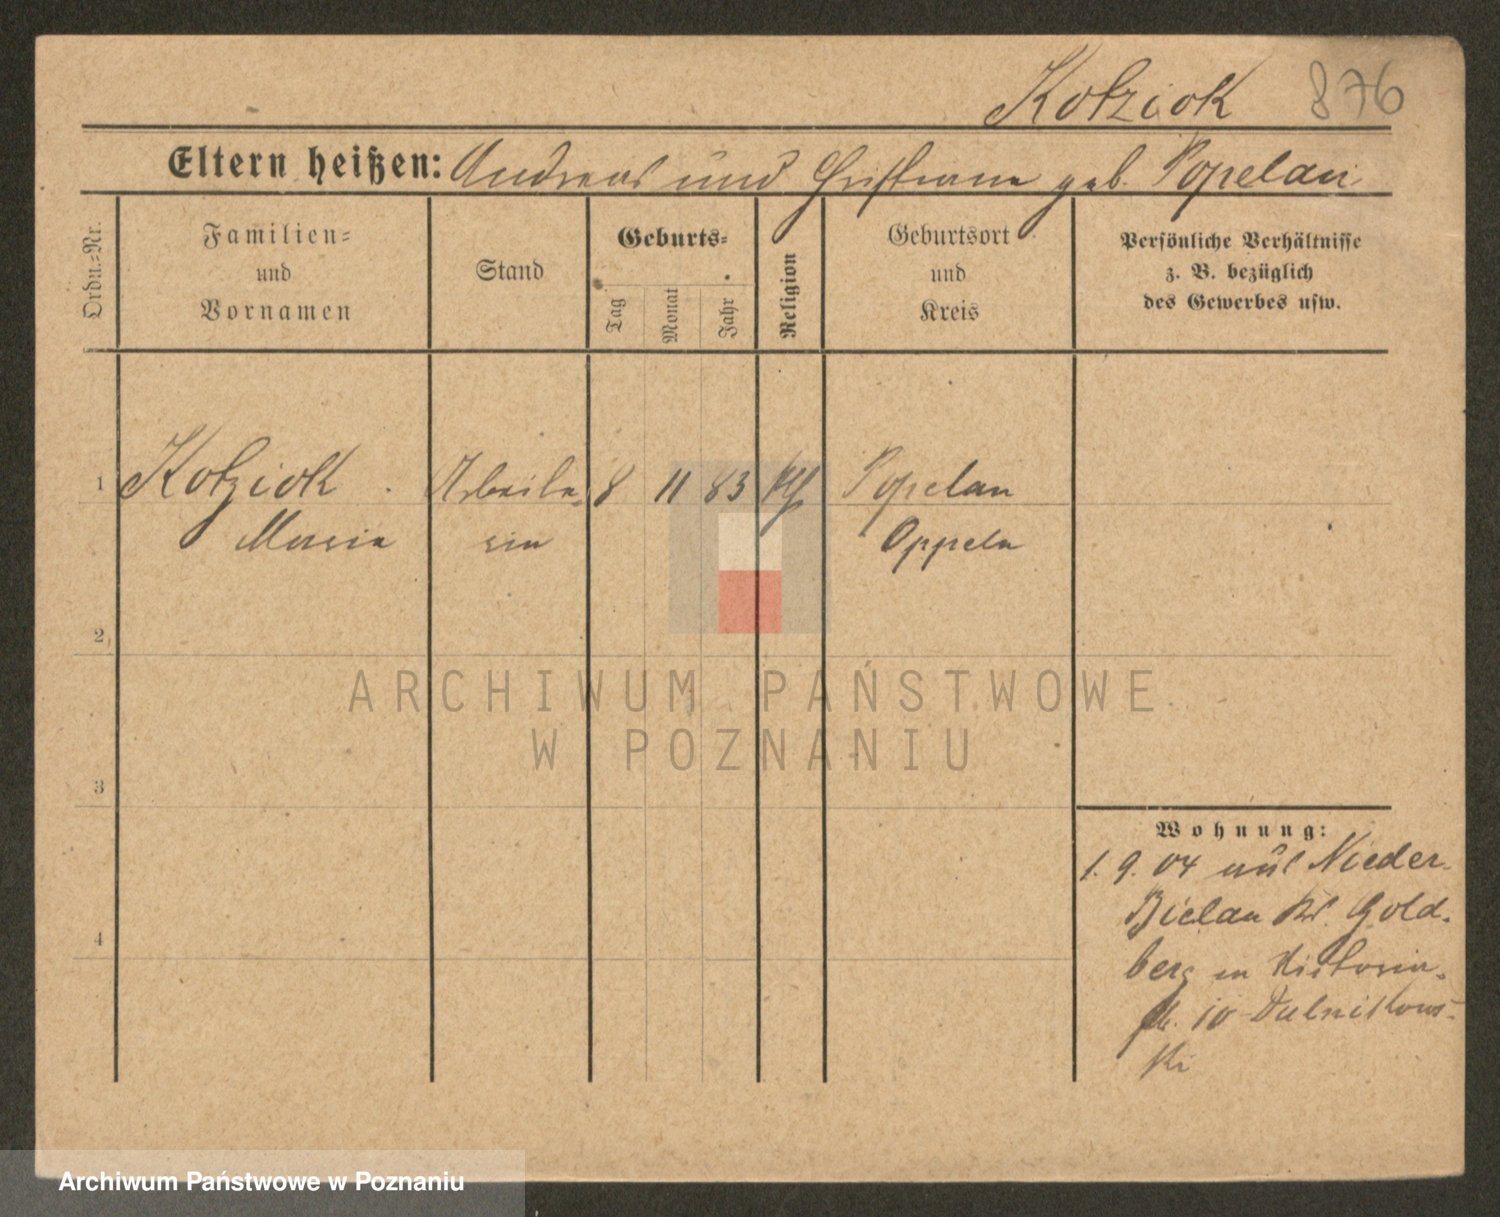 Kotziok 876
Eltern heißen: Andreas und geb. Popelau
Ordn.-Nr.
Familien-
und
Vornamen
Stand
Geburts-
Tag
Monat
Jahr
Religion
Geburtsort
und
Kreis
Persönliche Verhältnisse
z. B. bezüglich
des Gewerbes usw.
1 Kotziok Arbeite- 8 11 83 kth Popelau
Maria rin Oppeln
2
3
4
Wohnung:
1. 9. 04 aus Nieder-
Bielau Kr. Gold-
berg
10
ki
ARCHIWUM PAŃSTWOWE
W POZNANIU
Archiwum Państwowe w Poznaniu